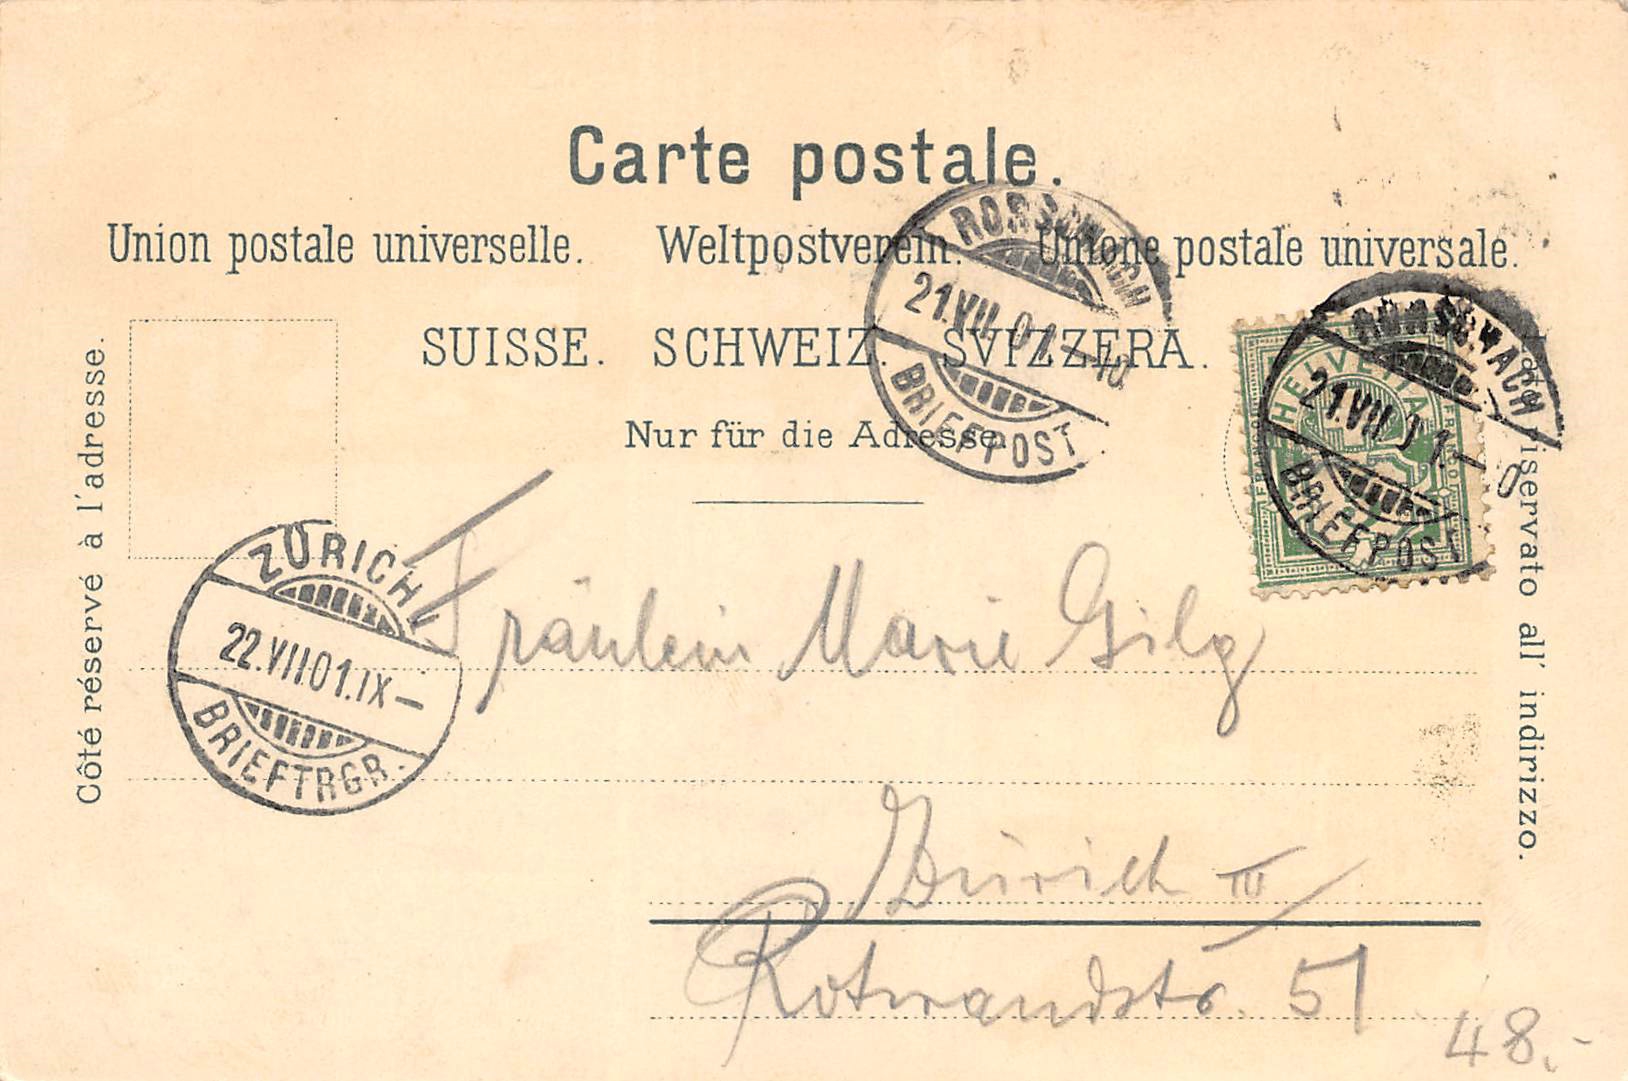 Carte postale.
Union postale universelle. Weltpostverein. Unione postale universale.
SUISSE. SCHWEIZ. SVIZZERA.
Nur für die Adresse.
Côté réservé à l'adresse.
riservato all' indirizzo.
RORSCHACH
21.VII.01.–10
BRIEFPOST
HELVETIA
FRANCO
RORSCHACH
21.VII.01.–
BRIEFPOST
ZÜRICH
22.VII.01.IX–
BRIEFTRGR.
Fräulein Marie Gilg
Zürich III
Rotwandstr. 51
48.-